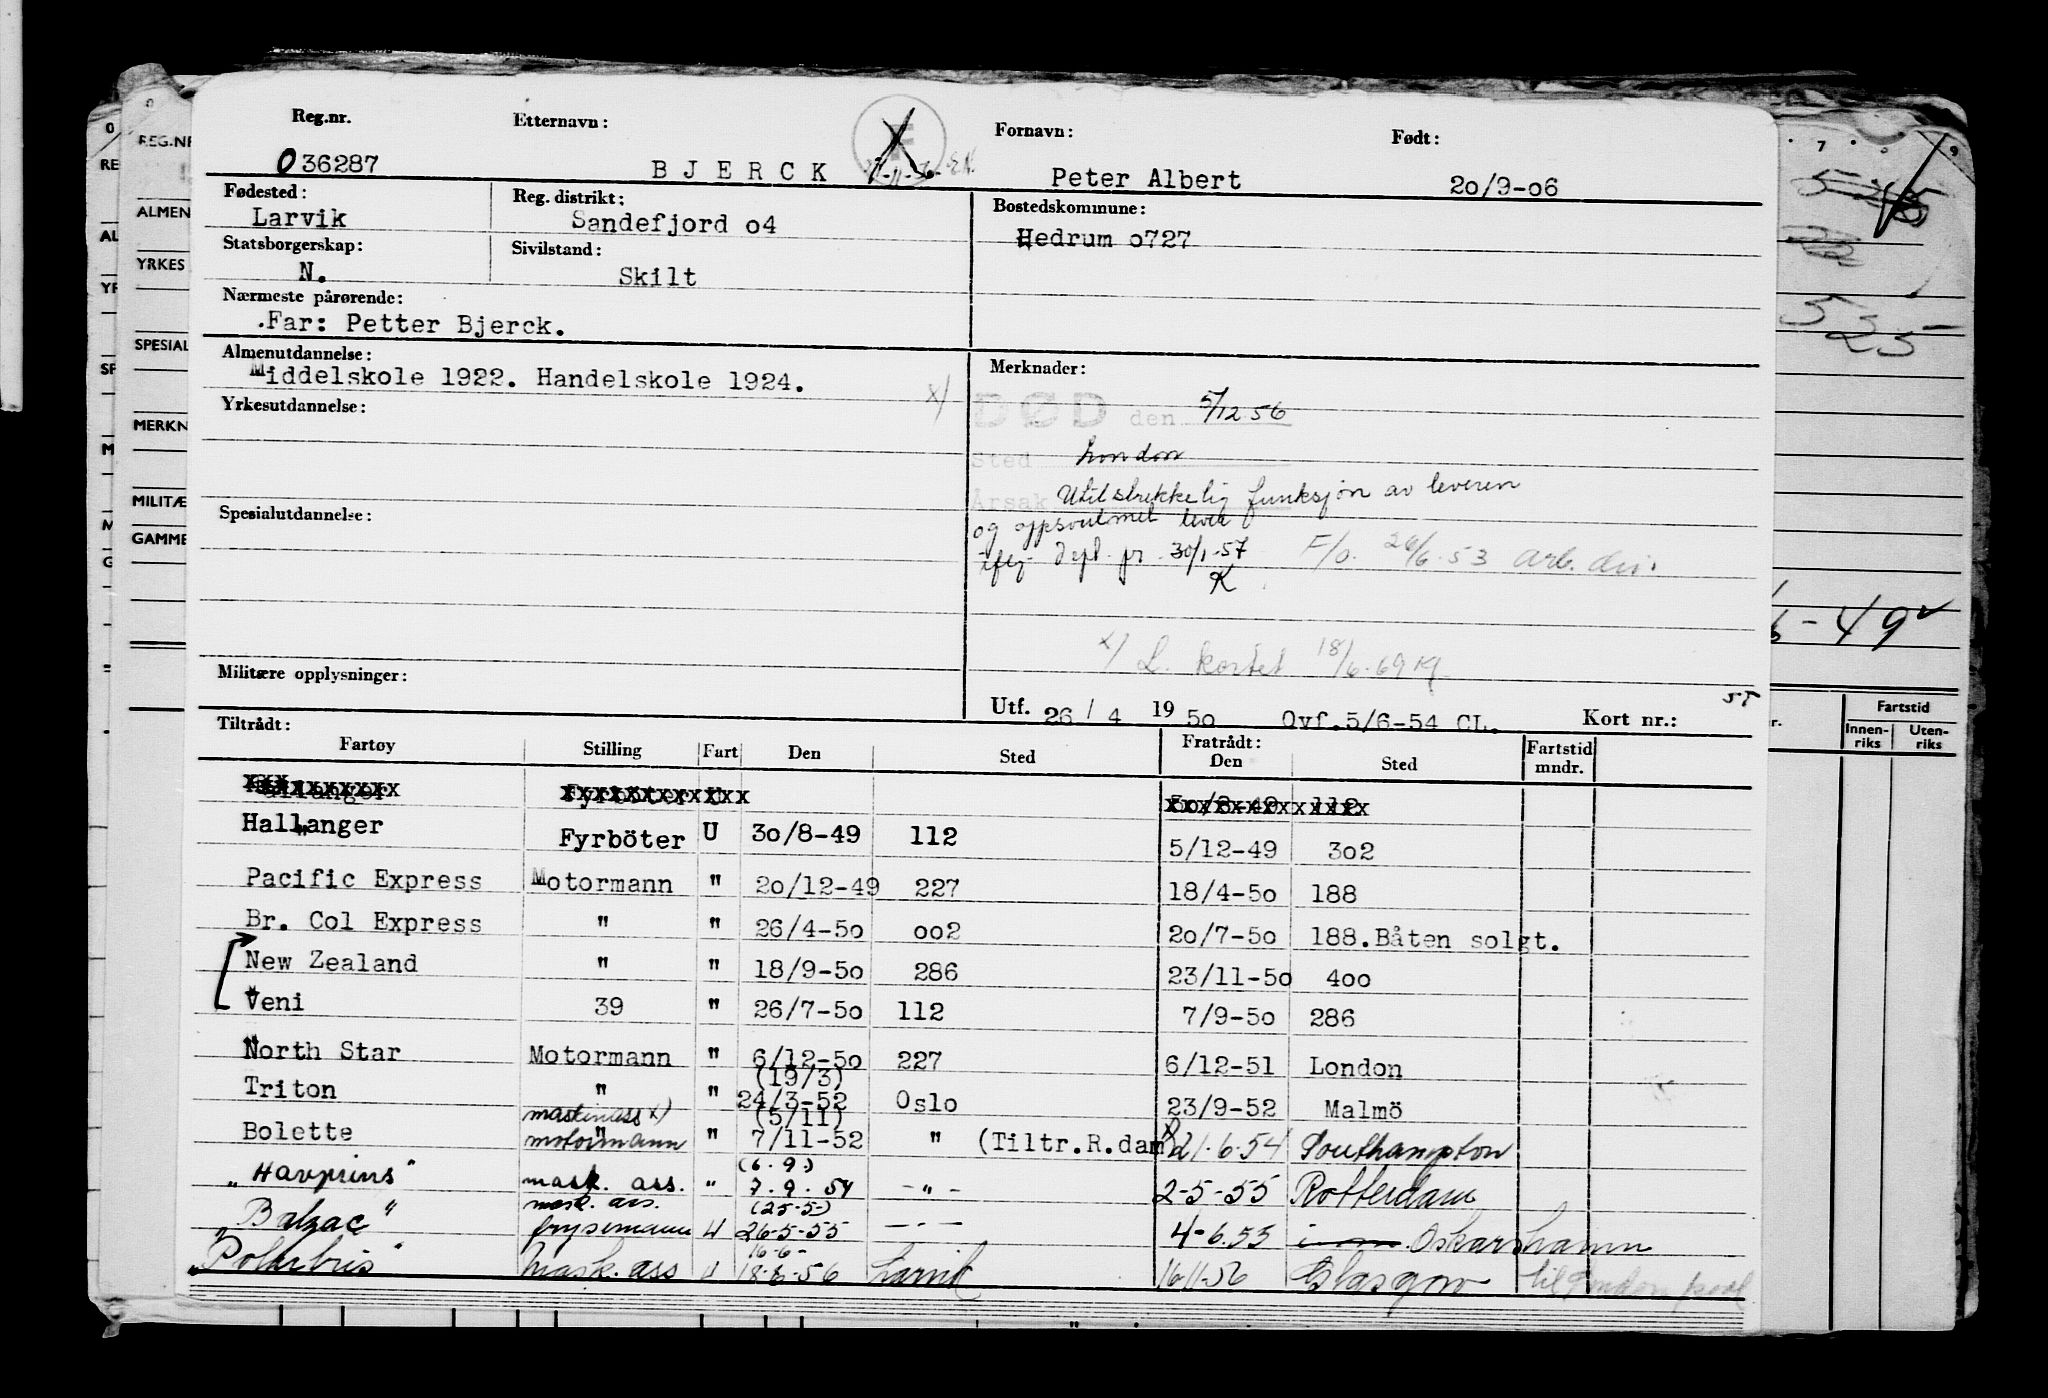 Reg.nr. Etternavn: Fornavn: Født:
036287 BJERCK Peter Albert 20/9-06
Fødested: Reg. distrikt: Bostedskommune:
Larvik Sandefjord o4 Hedrum o727
Statsborgerskap: Sivilstand:
N. Skilt
Nærmeste pårørende:
.Far: Petter Bjerck.
Almenutdannelse: Merknader:
Middelskole 1922. Handelskole 1924. x) DØD den 5/12 56
Yrkesutdannelse:
Sted London
Årsak Utilstrekkelig funksjon av leveren
Spesialutdannelse: og oppsvulmet lever
iflg. depl. pr. 30/1-57 F/o. 26/6-53 arb. div.
K
x) L. kortet 18/6-69 Kf
Militære opplysninger:
Utf. 26/4 1950 Ovf.5/6-54 CL. Kort nr.: 55
Tiltrådt: Fratrådt:
Fartøy Stilling Fart Den Sted Den Sted Fartstid mndr.
Hallanger Fyrböter U 30/8-49 112 5/12-49 302
Pacific Express Motormann " 20/12-49 227 18/4-50 188
Br. Col Express " " 26/4-50 002 20/7-50 188.Båten solgt.
New Zealand " " 18/9-50 286 23/11-50 400
Veni 39 " 26/7-50 112 7/9-50 286
North Star Motormann " 6/12-50 227 6/12-51 London
(19/3)
Triton " " 24/3-52 Oslo 23/9-52 Malmö
maskinass x) (5/11)
Bolette motormann " 7/11-52 " (Tiltr.R.dam) 21.6.54 Southampton
(6.9.)
"Havprins" mask. ass. " 7.9.54 - " - 2-5-55 Rotterdam
mask. ass. (25-5-)
"Balzac" frysemann U 26-5-55 - " - 4-6.55 Oskarshamn
16-6-
"Polarbris" mask. ass U 18-6-56 Larvik 16-11-56 Glasgow til London pool
REG.NR
ALMEN
YRKES
SPESIAL
MERKN
MILITÆ
GAMME
6-49
Fartstid
Innen-riks Uten-riks